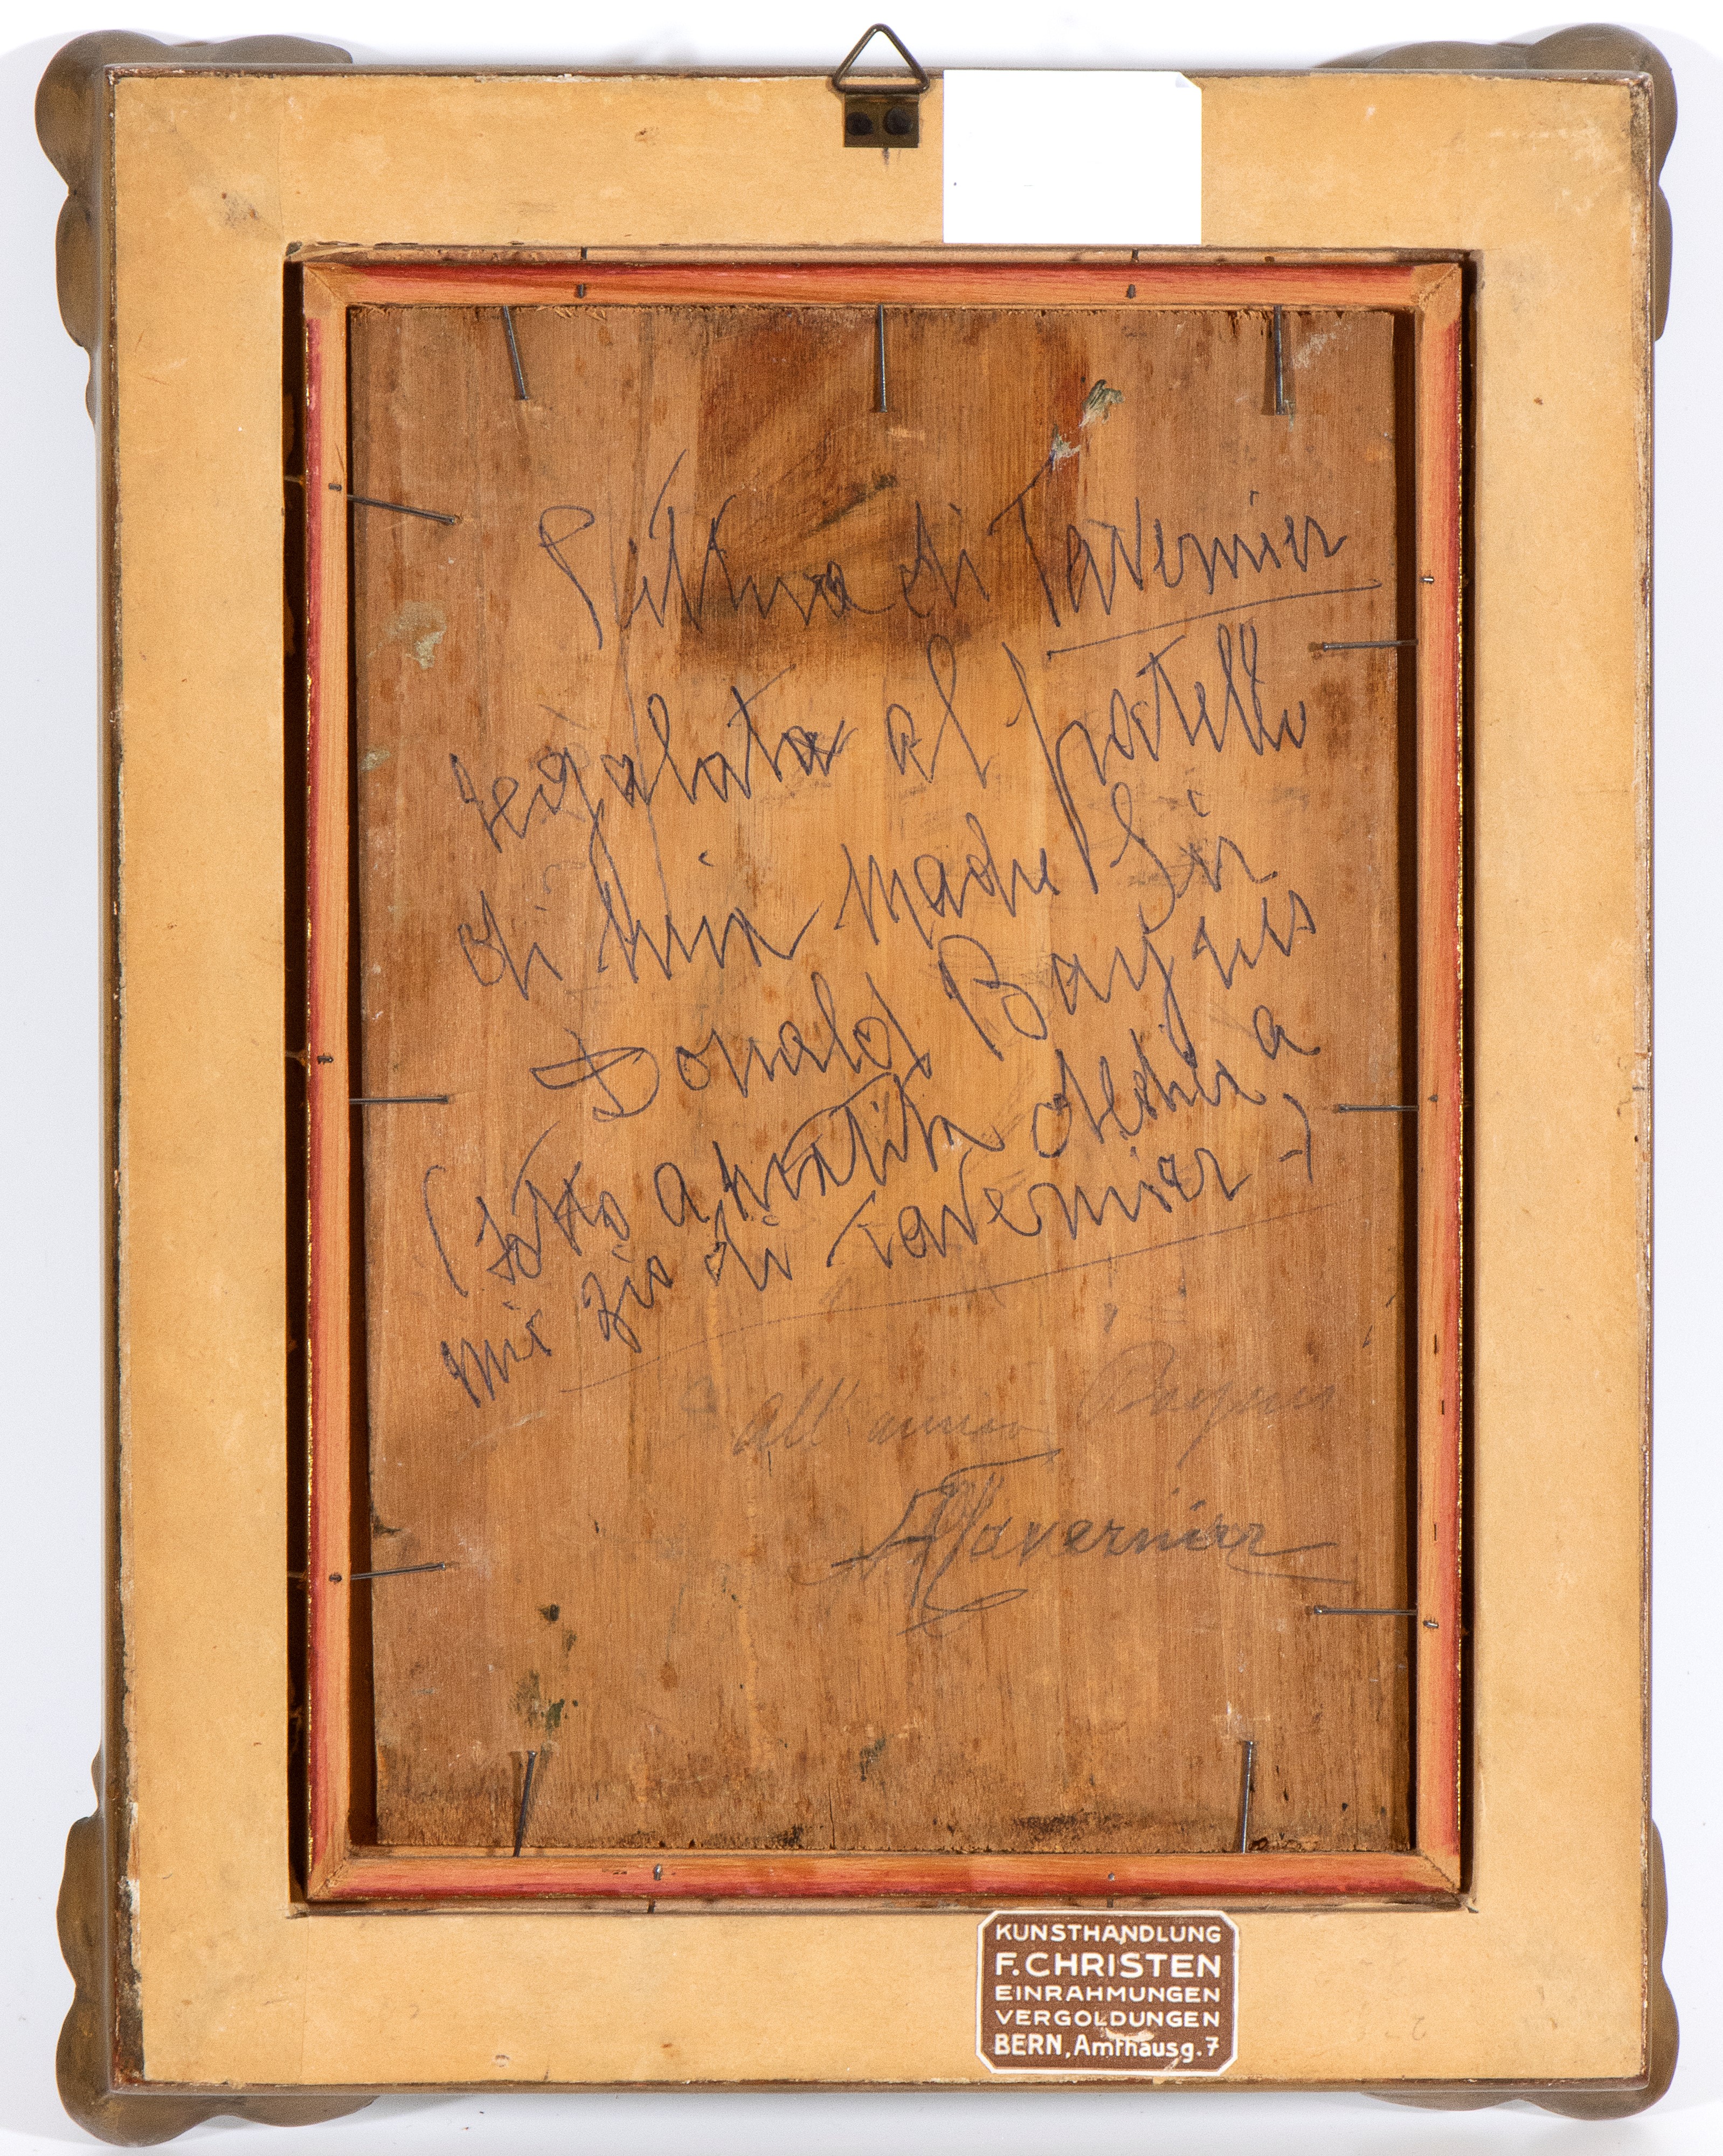 Pittura di Tavernier
regalata al fratello
di mia madre Sir
Donald Baynes
(sotto a matita dedica a
mio zio di Tavernier)
All'amico Baynes
ATavernier
KUNSTHANDLUNG
F. CHRISTEN
EINRAHMUNGEN
VERGOLDUNGEN
BERN, Amthausg. 7